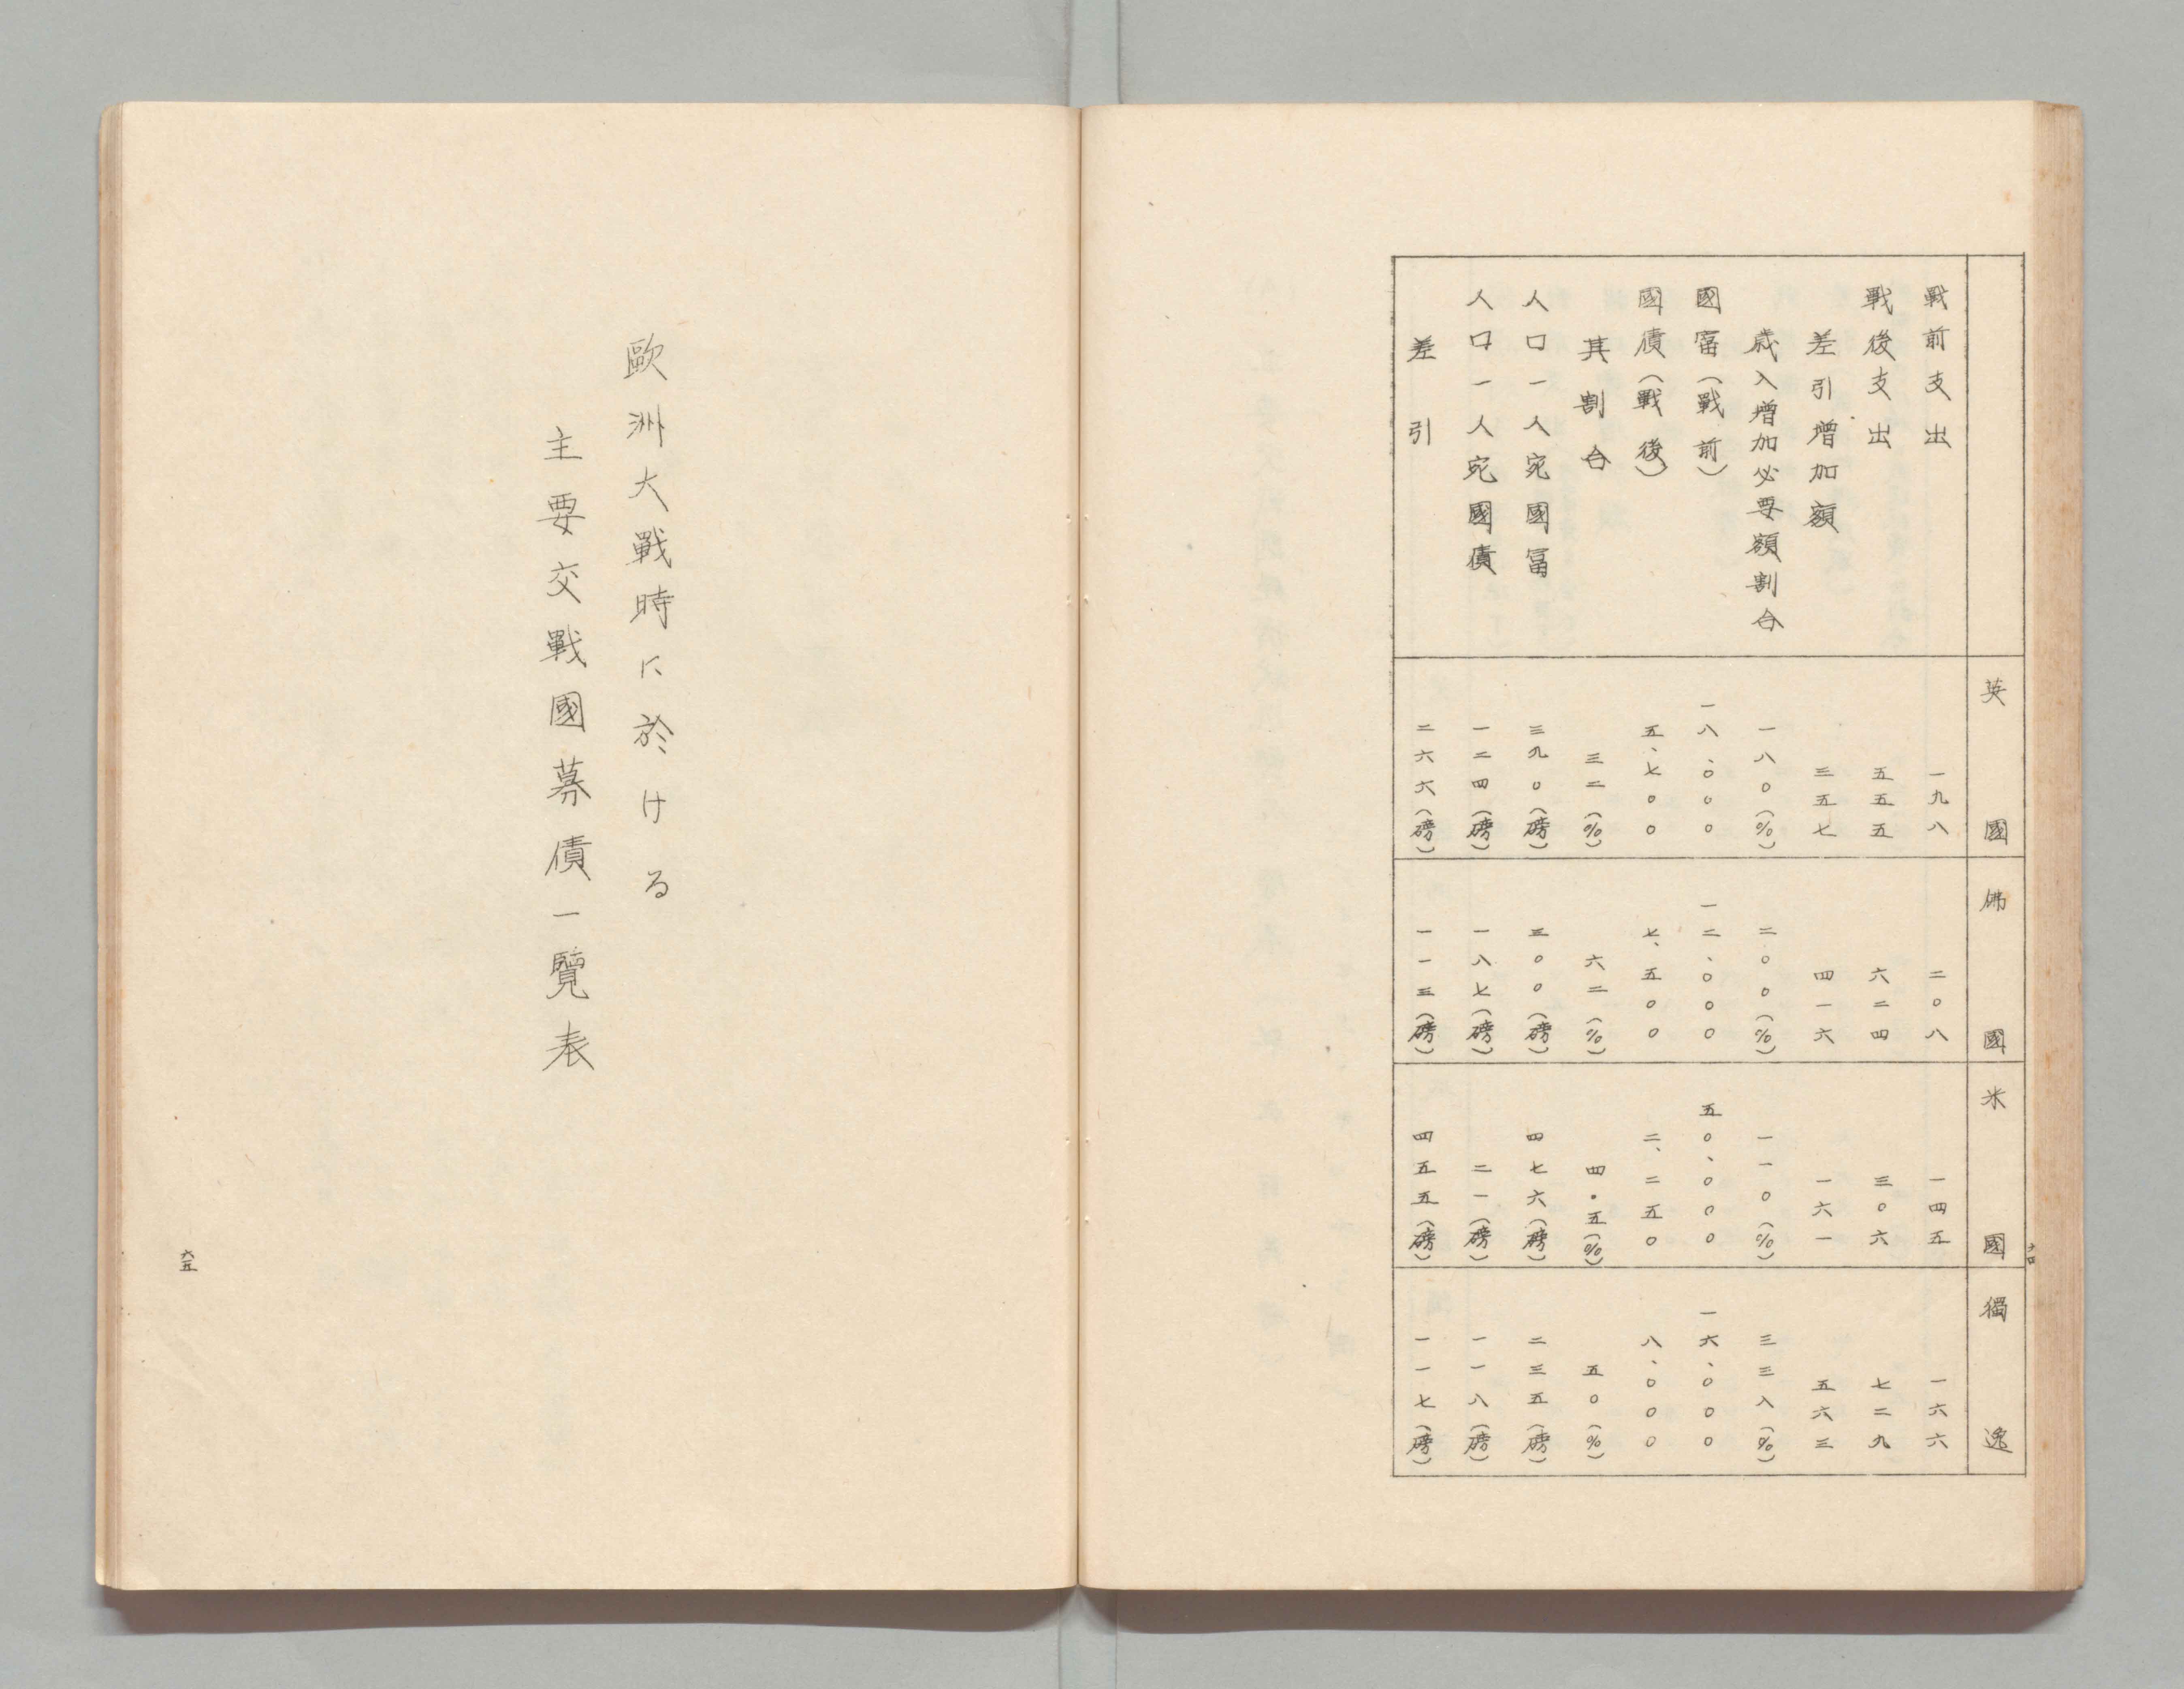 英國 佛國 米國 獨逸
戰前支出 一九八 二〇八 一四五 一六六
戰後支出 五五五 六二四 三〇六 七二九
差引增加額 三五七 四一六 一六一 五六三
歳入增加必要額割合 一八〇(%) 二〇〇(%) 一一〇(%) 三三八(%)
國富(戰前) 一八、〇〇〇 一二、〇〇〇 五〇、〇〇〇 一六、〇〇〇
國債(戰後) 五、七〇〇 七、五〇〇 二、二五〇 八、〇〇〇
其割合 三二(%) 六二(%) 四・五(%) 五〇(%)
人口一人宛國富 三九〇(磅) 三〇〇(磅) 四七六(磅) 二三五(磅)
人口一人宛國債 一二四(磅) 一八七(磅) 二一(磅) 一一八(磅)
差引 二六六(磅) 一一三(磅) 四五五(磅) 一一七(磅)
歐洲大戰時に於ける
主要交戰國募債一覽表
六五